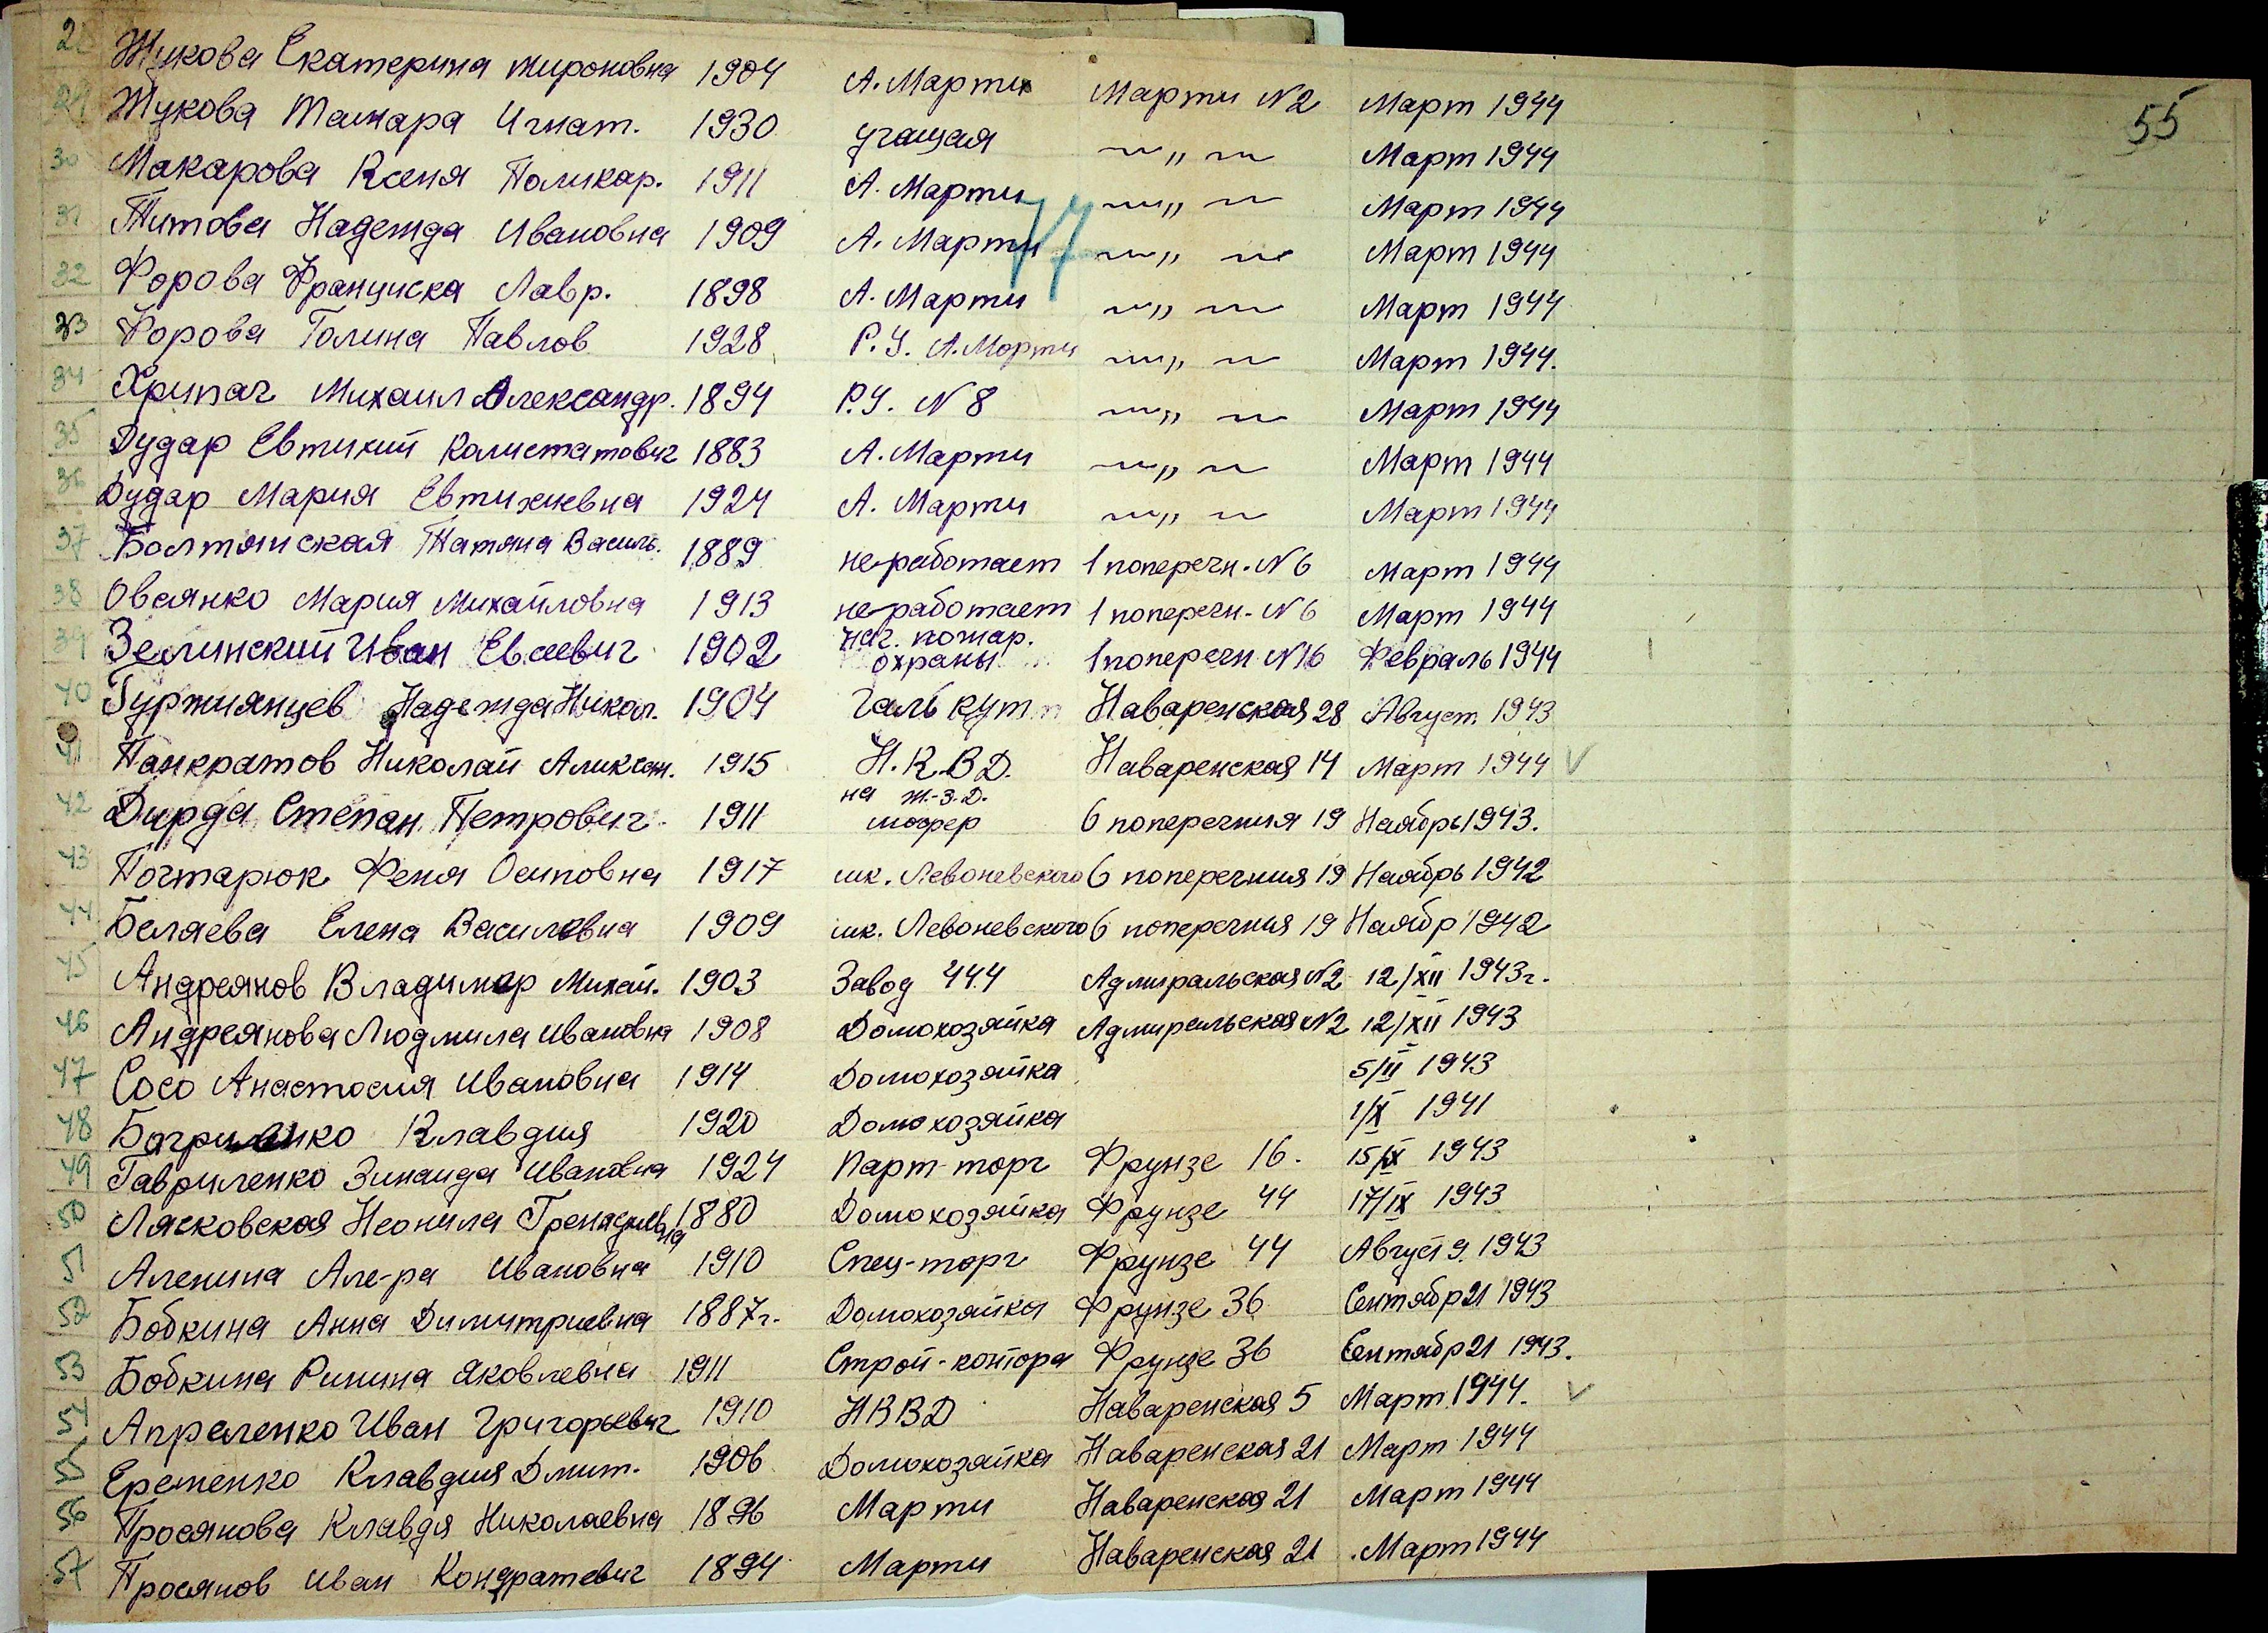 55
28 Жукова Екатерина Мироновна 1904 А. Марти Марти N2 Март 1944
29 Жукова Тамара Игнат. 1930 учащая —„— Март 1944
30 Макарова Ксеня Поликар. 1911 А. Марти —„— Март 1944
31 Титова Надежда Ивановна 1909 А. Марти —„— Март 1944
32 Форова Франциска Лавр. 1898 А. Марти —„— Март 1944
33 Форова Галина Павлов 1928 Р.У. А. Марти —„— Март 1944.
34 Хрипач Михаил Александр. 1894 Р.У. N 8 —„— Март 1944
35 Дудар Евтихий Калистатович 1883 А. Марти —„— Март 1944
36 Дудар Мария Евтихиевна 1924 А. Марти —„— Март 1944
37 Болтянская Татяна Василь. 1889 не работает 1 поперечн. N 6 Март 1944
38 Овсянко Мария Михайловна 1913 не работает 1 поперечн. N 6 Март 1944
39 Зелинский Иван Евсевич 1902 нач. пожар. охраны 1 поперечн N16 Февраль 1944
40 Гуржиянцев Надежда Никол. 1904 Наваренская 28 Август 1943
41 Панкратов Николай Аликсан. 1915 Н.К.В.Д. Наваренская 14 Март 1944 V
42 Дирда Степан Петрович 1911 на ж.-з.-д. шофер 6 поперечния 19 Наябрь 1943.
43 Почтарюк Феня Осиповна 1917 шк. Левоневского 6 поперечния 19 Наябрь 1942
44 Беляева Елена Василевна 1909 шк. Левоневского 6 поперечния 19 Наябр 1942
45 Андреянов Владимир Михай. 1903 Завод 444 Адмиральская N2 12/XII 1943г.
46 Андреянова Людмила Ивановна 1908 Домохозяйка Адмиральская N2 12/XII 1943
47 Сосо Анастосия Ивановна 1914 Домохозяйка 5/III 1943
48 Клавдия 1920 Домохозяйка 1/X 1941
49 Гавриленко Зинаида Ивановна 1924 Парт-торг Фрунзе 16. 15/IX 1943
50 Лясковская Неонила 1880 Домохозяйка Фрунзе 44 17/IX 1943
51 Аленина Але-ра Ивановна 1910 Спец-торг Фрунзе 44 Август 9. 1943
52 Бобкина Анна Димитриевна 1887г. Домохозяйка Фрунзе 36 Сентябр 21 1943
53 Бобкина Ринина Яковлевна 1911 Строй-контора Фрунзе 36 Сентябр 21 1943.
54 Апреленко Иван Григорьевич 1910 НВВД Наваренская 5 Март 1944. V
55 Еременко Клавдия Дмит. 1906 Домохозяйка Наваренская 21 Март 1944
56 Просянова Клавдя Николаевна 1896 Марти Наваренская 21 Март 1944
57 Просянов Иван Кондратевич 1894 Марти Наваренская 21 Март 1944